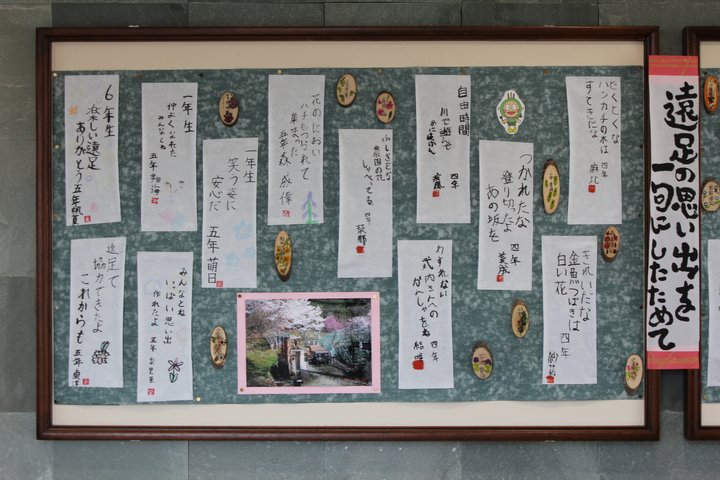 遠足の思い出を
一句にしたためて
とくとくな
ハンカチの木は
すてきだな
四年
自由時間
川で遊んで
四年
つかれたな
登り切ったよ
あの坂を
四年
きれいだな
金魚つばきは
白い花
四年
わすれない
武内さんへの
かんしゃをね
四年
ふしぎだな
農園の花
しゃべってる
四年
花のにおい
ハチもつられて
集まった
五年
一年生
笑う姿に
安心だ
五年 萌日
一年生
仲よくなれた
みんなとね
五年
みんなとね
いっぱい思い出
作れたよ
五年
6年生
楽しい遠足
ありがとう
五年
遠足で
協力できたよ
これからも
五年